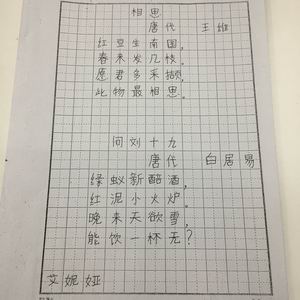 相思
唐代 王维
红豆生南国，
春来发几枝。
愿君多采撷，
此物最相思。
问刘十九
唐代 白居易
绿蚁新醅酒，
红泥小火炉。
晚来天欲雪，
能饮一杯无？
艾妮娅